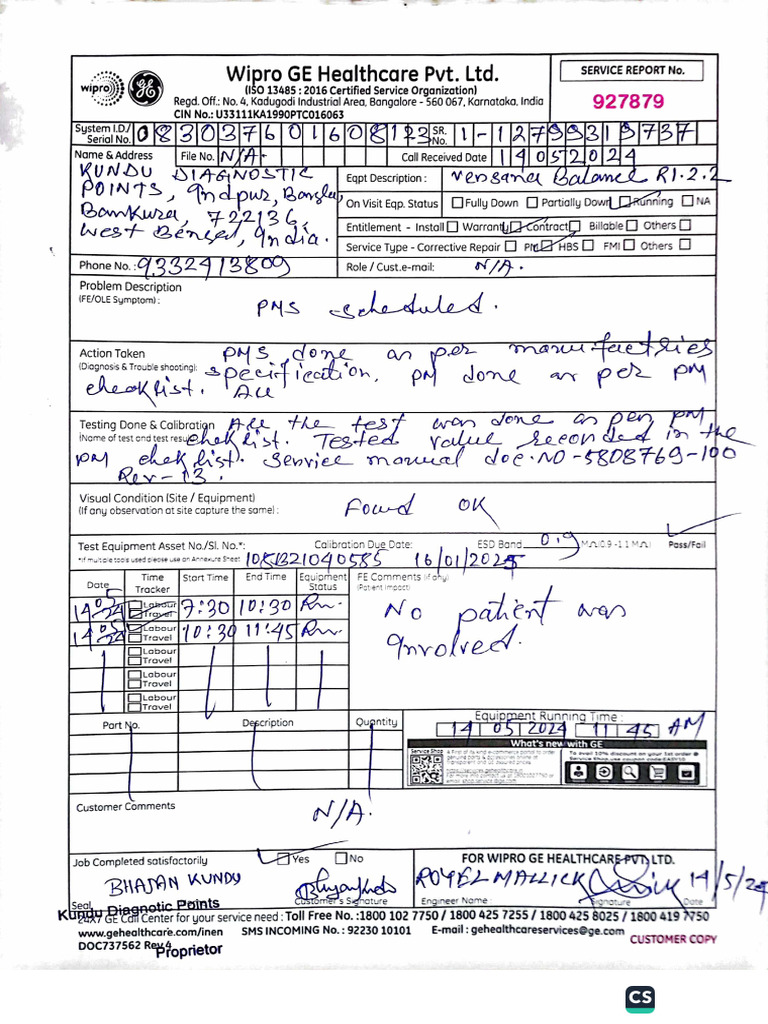 Wipro GE Healthcare Pvt. Ltd.
(ISO 13485 : 2016 Certified Service Organization)
Regd. Off.: No. 4, Kadugodi Industrial Area, Bangalore - 560 067, Karnataka, India
CIN No.: U33111KA1990PTC016063
wipro
SERVICE REPORT No.
927879
System I.D./ Serial No. 083037601608123 SR. No. 1-12799319737
Name & Address File No. N/A- Call Received Date 14052024
KUNDU DIAGNOSTIC
POINTS, Indpur, Bangla,
Bankura, 722136,
West Bengal, India.
Eqpt Description : Versana Balance R1.2.2
On Visit Eqp. Status Fully Down Partially Down Running NA
Entitlement - Install Warranty Contract Billable Others
Service Type - Corrective Repair PM HBS FMI Others
Phone No. : 9332413809 Role / Cust.e-mail: N/A.
Problem Description
(FE/OLE Symptom) :
PMS scheduled.
Action Taken PMS done as per manufactries
(Diagnosis & Trouble shooting): specification, PM done as per PM
checklist. All
Testing Done & Calibration All the test was done as per PM
(Name of test and test resu cheklist. Tested value recorded in the
PM cheklist. Service manual doc.NO-5808769-100
Rev-13.
Visual Condition (Site / Equipment)
(If any observation at site capture the same) : Found OK
Test Equipment Asset No./Sl. No.*: Calibration Due Date: ESD Band 0.9 MΩ(0.9 -1.1 MΩ) Pass/Fail
*If multiple tools used please use an Annexure Sheet 16/01/2025
Date Time Tracker Start Time End Time Equipment Status FE Comments (if any)
(Patient Impact)
14/05-24 Labour Travel 7:30 10:30 Run.
14/05-24 Labour Travel 10:30 11:45 Run.
Labour
Travel
Labour
Travel
Labour
Travel
No patient was
involved.
Part No. Description Quantity
Equipment Running Time :
14 05 2024 11 45 AM
What's new with GE
Service Shop
Customer Comments
N/A.
Job Completed satisfactorily Yes No
FOR WIPRO GE HEALTHCARE PVT. LTD.
BHAJAN KUNDU
ROYEL MALLICK 14/5/24
Seal Customer's Signature Engineer Name : Signature Date
Kundu Diagnotic Points
24X7 GE Call Center for your service need : Toll Free No. :1800 102 7750 / 1800 425 7255 / 1800 425 8025 / 1800 419 7750
www.gehealthcare.com/inen SMS INCOMING No. : 92230 10101 E-mail : gehealthcareservices@ge.com
DOC737562 Rev 4
Proprietor
CUSTOMER COPY
CS